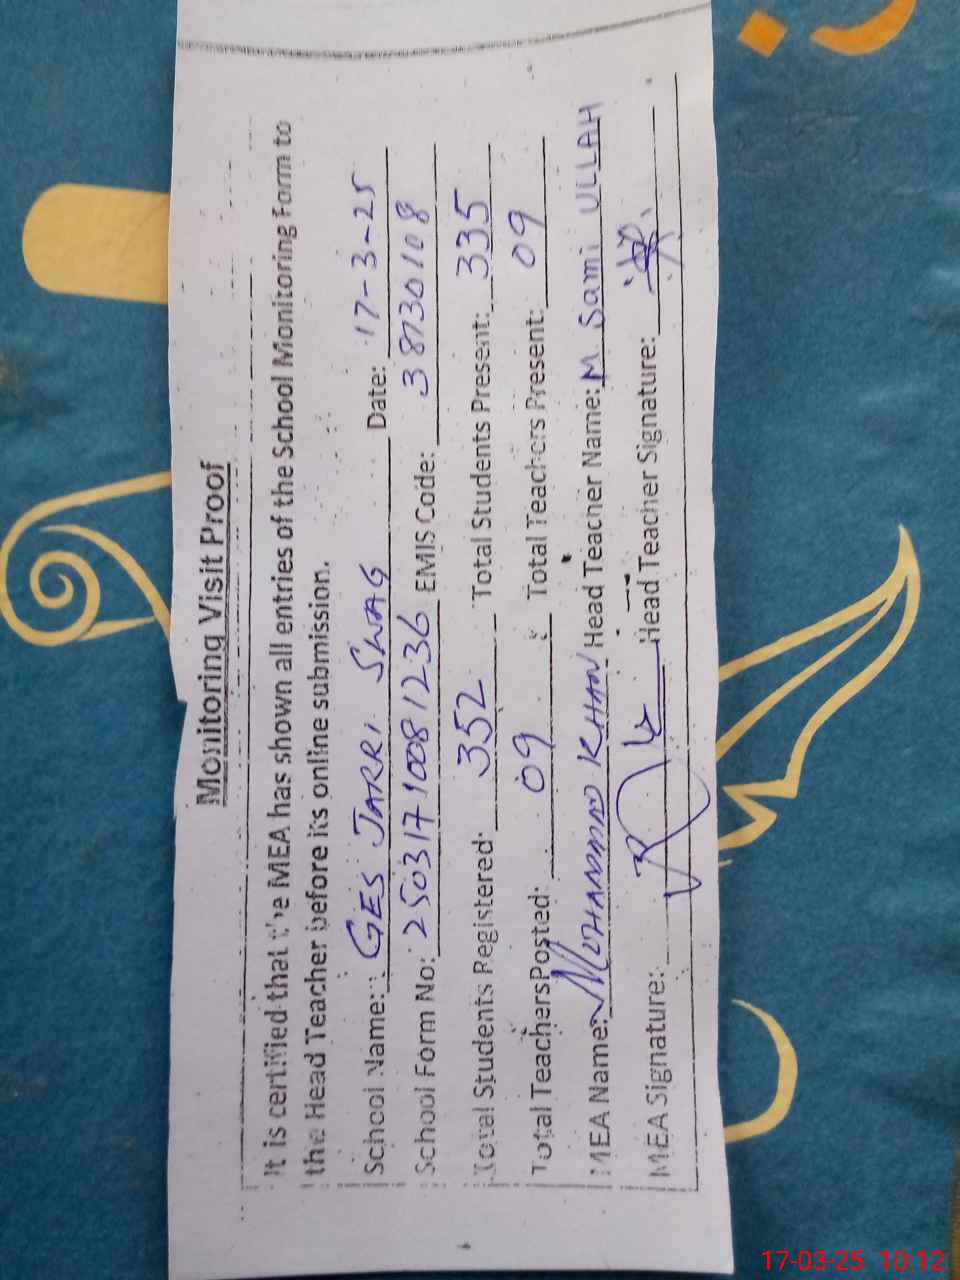 Monitoring Visit Proof
It is certified that the MEA has shown all entries of the School Monitoring Form to
the Head Teacher before its online submission.
School Name: GES JARRI SWAG Date: 17-3-25
School Form No: 25031710081236 EMIS Code: 38730108
Total Students Registered: 352 Total Students Present: 335
Total Teachers Posted: 09 Total Teachers Present: 09
MEA Name: MOHAMMAD KHAN Head Teacher Name: M Sami ULLAH
MEA Signature: Head Teacher Signature:
17-03-25 10:12